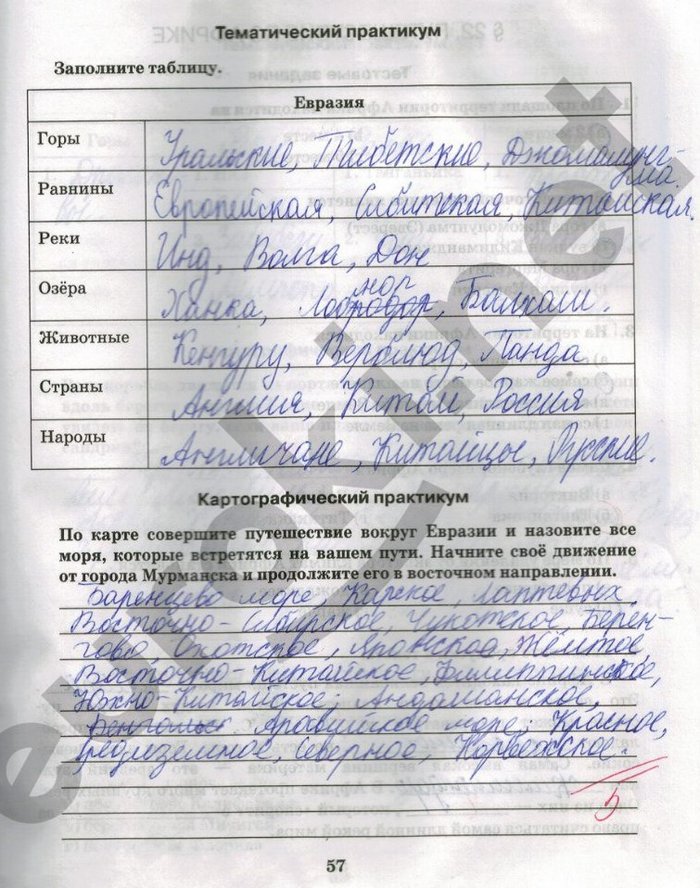 Тематический практикум
Заполните таблицу.
Евразия
Горы
Уральские, Тибетские, Джомолунг-
ма.
Равнины
Европейская, Сибитская, Китайская.
Реки
Инд, Волга, Дон
Озёра
нор
Ханка, Лоб Балхаш.
Животные
Кенгуру, Верблюд, Панда
Страны
Англия, Китай, Россия
Народы
Англичане, Китайцы, Русские.
Картографический практикум
По карте совершите путешествие вокруг Евразии и назовите все
моря, которые встретятся на вашем пути. Начните своё движение
от города Мурманска и продолжите его в восточном направлении.
Баренцево море, Карское, Лаптевых,
Восточно-Сибирское, Чукотское, Берен-
гово, Охотское, Японское, Жёлтое,
Восточно-Китайское, Филиппинское,
Южно-Китайское; Андаманское,
Аравийское море; Красное,
Средиземное, Северное, Норвежское.
5
57
euroki.net